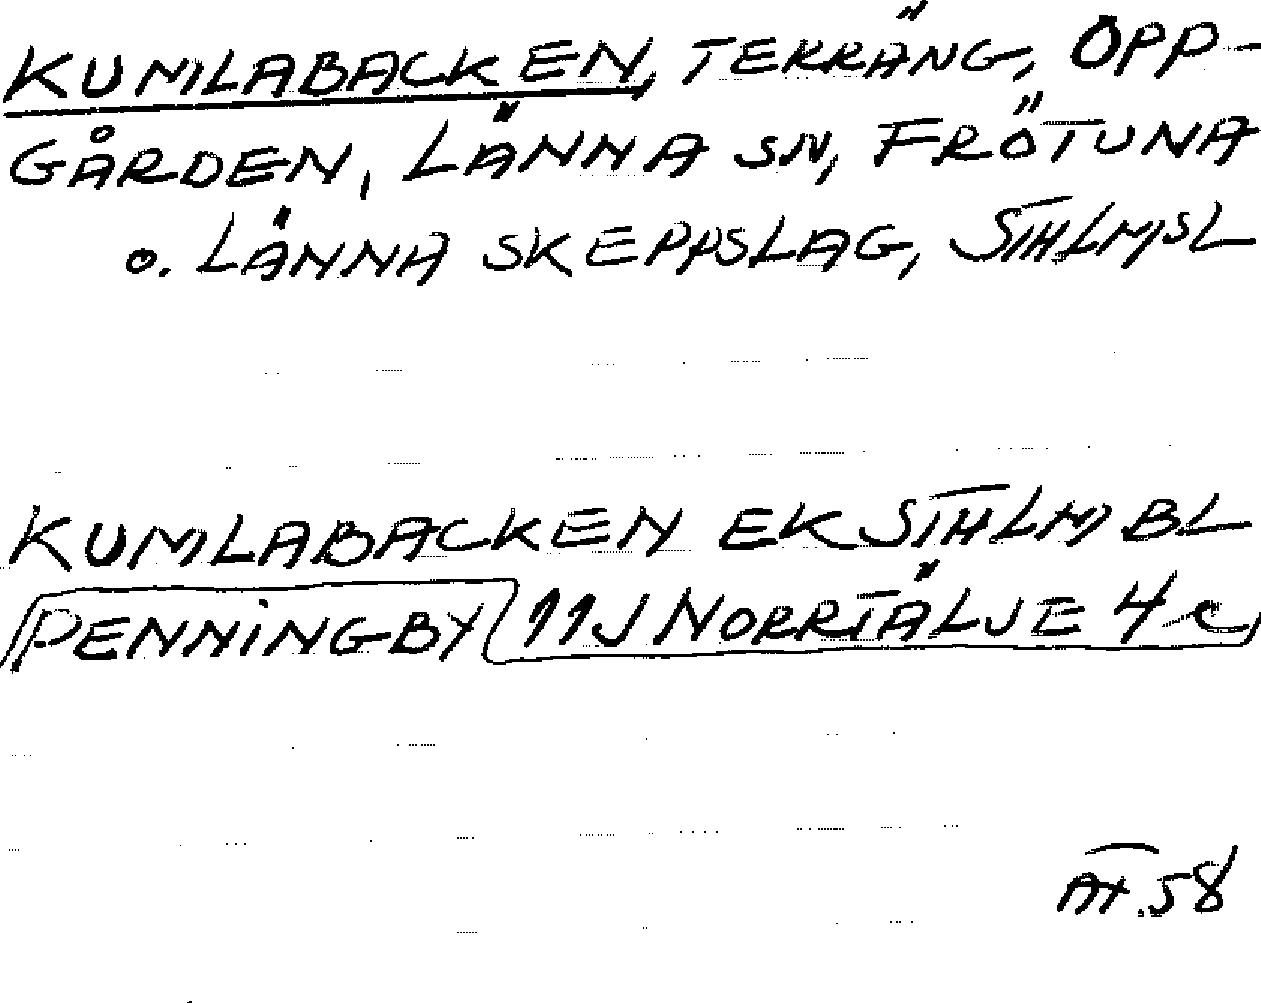 KUMLABACKEN, TERRÄNG, ÖPP-
GÅRDEN, LÄNNA SN, FRÖTUNA
o. LÄNNA SKEPPSLAG, STHLMSL
KUMLABACKEN EK STHLM BL
PENNINGBY 11J NORRTÄLJE 4c
AT.58